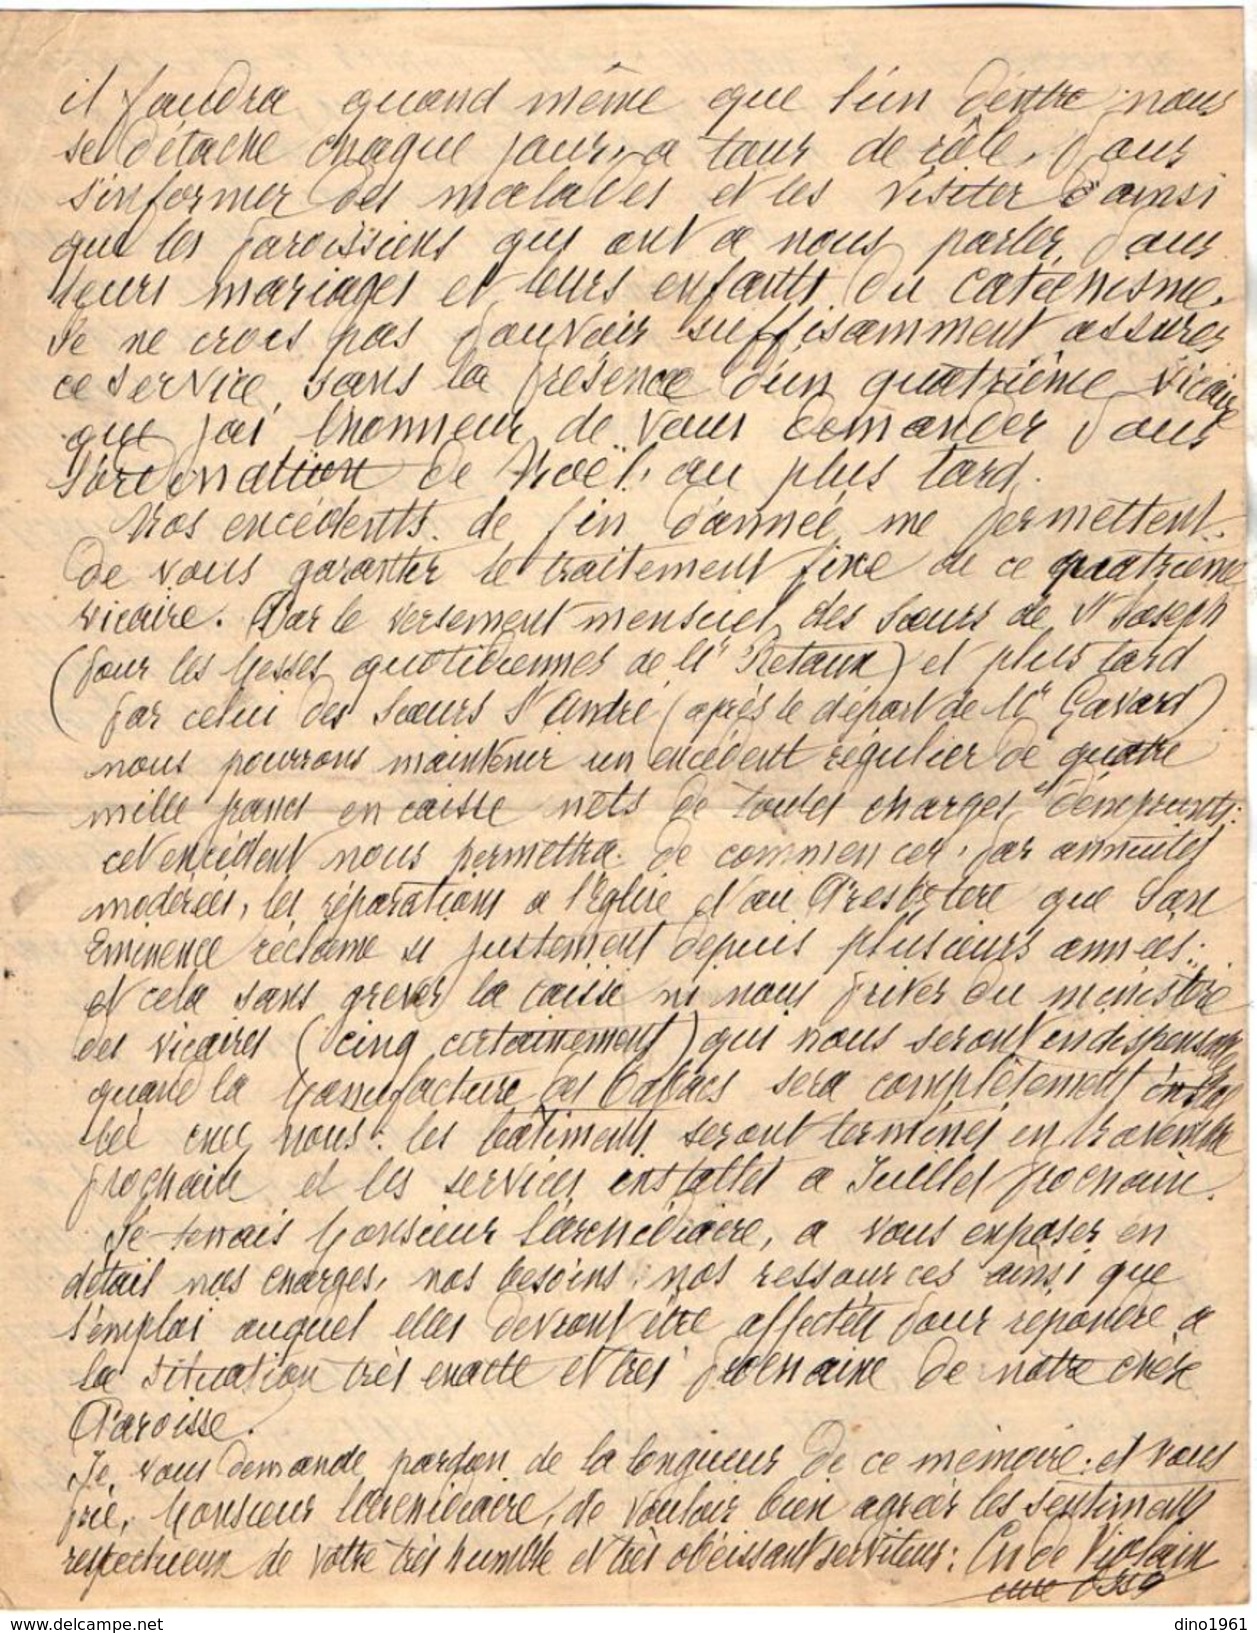 il faudra quand même que l'un d'entre nous
se détache chaque jour, a tour de rôle, pour
s'informer des malades et les visiter d'ainsi
que les paroissiens qui ont a nous parler pour
leurs mariages et leurs enfants du catéchisme.
Je ne crois pas pouvoir suffisamment assurer
ce service, sans la présence d'un quatrième vicaire
que j'ai l'honneur de vous demander pour
l'ordination de Noël, au plus tard.
Nos excédents de fin d'année me permettent
de vous garantir le traitement fixe de ce quatrième
vicaire. Par le versement mensuel des Sœurs de St Joseph
(pour les Messes quotidiennes de Mr Retaux) et plus tard
par celui des Sœurs St André (après le départ de Mr Gavard)
nous pourrons maintenir un excédent régulier de quatre
mille francs en caisse nets de toutes charges et d'emprunts:
cet excédent nous permettra de commencer, par annuités
modérées, les réparations a l'Eglise et au Presbytère que Son
Eminence réclame si justement depuis plusieurs années:
et cela sans grever la caisse ni nous priver du ministère
des vicaires (cinq certainement) qui nous seront indispensables
quand la Manufacture des Tabacs sera complètement instal
lée chez nous: les bâtiments seront terminés en Novembre
prochain et les services installés a Juillet prochain.
Je tenais Monsieur l'archidiacre, a vous exposer en
détail nos charges, nos besoins, nos ressources ainsi que
l'emploi auquel elles devront être affectées pour répondre a
la situation très exacte et très prochaine de notre chère
Paroisse.
Je vous demande pardon de la longueur de ce mémoire, et vous
prie, Monsieur l'archidiacre, de vouloir bien agréer les sentiments
respectueux de votre très humble et très obéissant serviteur: Ch de Violain
curé
dino1961